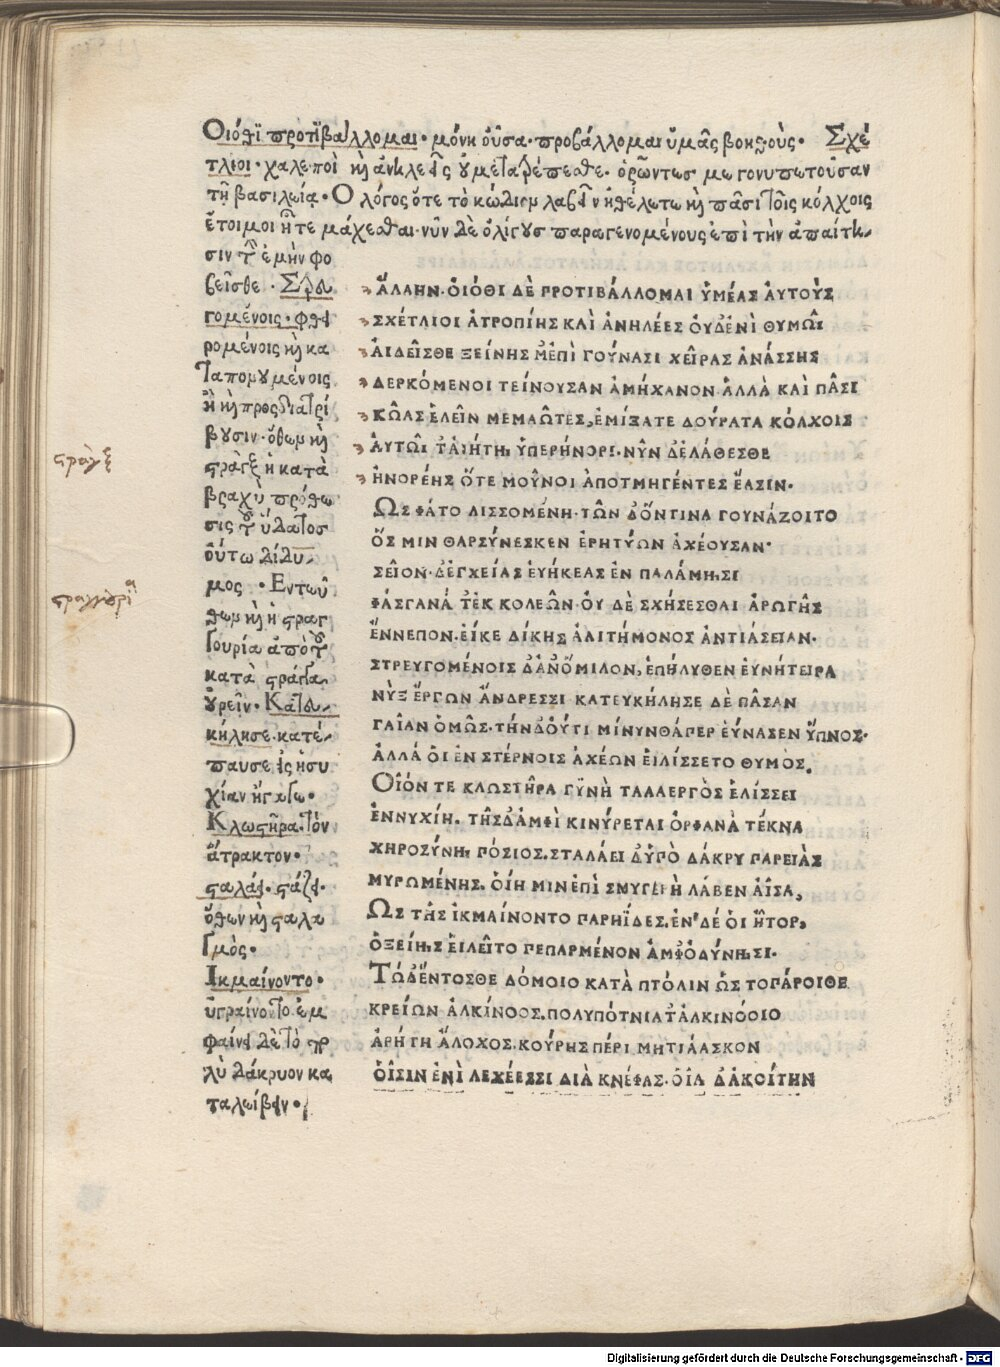 Οἰόθι προτιβάλλομαι· μόνη οὖσα· προβάλλομαι ὑμᾶς βοηθούς· Σχέ
τλιοι· χαλεποὶ καὶ ἀνηλεεῖς οὐ μετατρέπεσθε· ὁρῶντες με γονυπετοῦσαν
τῇ βασιλείᾳ· Ὁ λόγος ὅτε τὸ κώδιον λαβεῖν ἠθέλετε καὶ πᾶσι τοῖς κόλχοις
ἕτοιμοι ἦτε μάχεσθαι· νῦν δὲ ὀλίγους παραγενομένους ἐπὶ τὴν ἀπαίτη-
σιν τὴν ἐμὴν φο
βεῖσθε· Στρευ
γομένοις· φθει
ρομένοις καὶ κα
ταπονουμένοις
ἢ καὶ προσδιατρί
βουσιν· ὅθεν καὶ
στρὰγξ ἡ κατὰ
βραχὺ πρόθε
σις τοῦ ὕδατος
οὕτω δίδυ-
μος· Ἐντεῦ
θεν καὶ ἡ στραγ
γουρία ἀπὸ τοῦ
κατὰ στράγγα
οὐρεῖν· Κατευ-
κήλησε· κατέ-
παυσε εἰς ἡσυ
χίαν ἤγαγε·
Κλωστῆρα· τὸν
ἄτρακτον·
σταλάει· στάζει·
ὅθεν καὶ σταλα
γμὸς·
Ἰκμαίνοντο·
ὑγραίνοντο ἐμ
φαίνει δὲ τὸ πο
λὺ δάκρυον κα
ταλείβειν·
στρὰγξ
στραγγουρία
ἌΛΛΗΝ· ΟἸΌΘΙ ΔῈ ΠΡΟΤΙΒΆΛΛΟΜΑΙ ὙΜΈΑΣ ἈΥΤΟῪΣ
ΣΧΈΤΛΙΟΙ ἈΤΡΟΠΊΗΣ ΚΑῚ ἈΝΗΛΈΕΣ ΟΥ̓ΔΕΝῚ ΘΥΜΩ͂Ι
ἈΙΔΕΙ͂ΣΘΕ ΞΕΊΝΗΣ Μ' ἘΠῚ ΓΟΎΝΑΣΙ ΧΕΙ͂ΡΑΣ ἈΝΆΣΣΗΣ
ΔΕΡΚΌΜΕΝΟΙ ΤΕΊΝΟΥΣΑΝ ἈΜΉΧΑΝΟΝ· ἈΛΛᾺ ΚΑῚ ΠΑ͂ΣΙ
ΚΩ͂ΑΣ ἙΛΕΙ͂Ν ΜΕΜΑΩ͂ΤΕΣ, ἘΜΊΞΑΤΕ ΔΟΎΡΑΤΑ ΚΌΛΧΟΙΣ
ἈΥΤΩ͂Ι Τ' ἈΙΉΤΗΙ ὙΠΕΡΉΝΟΡΙ· ΝΥ͂Ν ΔῈ ΛΆΘΕΣΘΕ
ἨΝΟΡΈΗΣ ὍΤΕ ΜΟΥ͂ΝΟΙ ἈΠΟΤΜΗΓΈΝΤΕΣ ἜΑΣΙΝ·
ὩΣ ΦΆΤΟ ΛΙΣΣΟΜΈΝΗ· ΤΩ͂Ν Δ' ὍΝΤΙΝΑ ΓΟΥΝΆΖΟΙΤΟ
ὍΣ ΜΙΝ ΘΑΡΣΎΝΕΣΚΕΝ ἘΡΗΤΎΩΝ ἈΧΈΟΥΣΑΝ·
ΣΕΙ͂ΟΝ· Δ' ἘΓΧΕΊΑΣ ἘΥΉΚΕΑΣ ἘΝ ΠΑΛΆΜΗΙΣΙ
ΦΆΣΓΑΝΆ Τ' ἘΚ ΚΟΛΕΩ͂Ν· ΟΥ̓ ΔῈ ΣΧΉΣΕΣΘΑΙ ἈΡΩΓΗ͂Σ
ἜΝΝΕΠΟΝ· ἜΙΚΕ ΔΊΚΗΣ ἈΛΙΤΉΜΟΝΟΣ ἈΝΤΙΆΣΕΙΑΝ·
ΣΤΡΕΥΓΟΜΈΝΟΙΣ Δ' ἈΝ' ὍΜΙΛΟΝ, ἘΠΉΛΥΘΕΝ ἘΥΝΉΤΕΙΡΑ
ΝῪΞ ἜΡΓΩΝ ἌΝΔΡΕΣΣΙ ΚΑΤΕΥΚΉΛΗΣΕ ΔῈ ΠΑ͂ΣΑΝ
ΓΑΙ͂ΑΝ ὉΜΩ͂Σ· ΤῊΝ Δ' ΟΎΤΙ ΜΊΝΥΝΘΆ ΠΕΡ ἘΎΝΑΣΕΝ ὝΠΝΟΣ·
ἈΛΛΆ ὉΙ ἘΝ ΣΤΈΡΝΟΙΣ ἈΧΈΩΝ ἘΙΛΊΣΣΕΤΟ ΘΥΜΌΣ,
ΟἿΟΝ ΤΕ ΚΛΩΣΤΗ͂ΡΑ ΓΥΝῊ ΤΑΛΑΕΡΓῸΣ ἙΛΊΣΣΕΙ
ἘΝΝΥΧΊΗ. ΤΗ͂Σ Δ' ἈΜΦῚ ΚΙΝΎΡΕΤΑΙ ὈΡΦΑΝᾺ ΤΈΚΝΑ
ΧΗΡΟΣΎΝΗΙ ΠΌΣΙΟΣ. ΣΤΑΛΆΕΙ Δ' ὙΠῸ ΔΆΚΡΥ ΠΑΡΕΙᾺΣ
ΜΥΡΩΜΈΝΗΣ. ὉΊΗ ΜΙΝ ἘΠῚ ΣΜΥΓΕΡῊ ΛΆΒΕΝ ἈΙ͂ΣΑ,
ὩΣ ΤΗ͂Σ ἸΚΜΑΊΝΟΝΤΟ ΠΑΡΗΪΔΕΣ. ἘΝ ΔΈ ὉΙ ἮΤΟΡ,
ὈΞΕΊΗΙΣ ἘΙΛΕΙ͂ΤΟ ΠΕΠΑΡΜΈΝΟΝ ἈΜΦ' ὈΔΎΝΗΙΣΙ·
ΤῺ Δ' ἜΝΤΟΣΘΕ ΔΌΜΟΙΟ ΚΑΤᾺ ΠΤΌΛΙΝ ὩΣ ΤΟΠΆΡΟΙΘΕ
ΚΡΕΊΩΝ ἈΛΚΊΝΟΟΣ. ΠΟΛΥΠΌΤΝΙΑ Τ' ἈΛΚΙΝΌΟΙΟ
ἈΡΉΤΗ ἌΛΟΧΟΣ. ΚΟΎΡΗΣ ΠΈΡΙ ΜΗΤΙΆΑΣΚΟΝ
ὉΙ͂ΣΙΝ ἘΝῚ ΛΕΧΈΕΣΣΙ ΔΙᾺ ΚΝΈΦΑΣ· ὉΙ͂Α Δ' ἈΚΟΊΤΗΝ
Digitalisierung gefördert durch die Deutsche Forschungsgemeinschaft - DFG